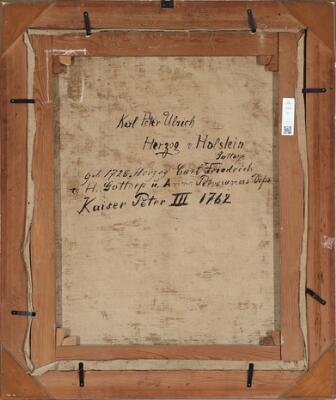 Karl Peter Ulrich
Herzog v. Holstein
Gottorp
geb. 1728, Herzog Carl Friedrich
v. H. Gottorp u. Anna Petrownas
Kaiser Peter III 1762